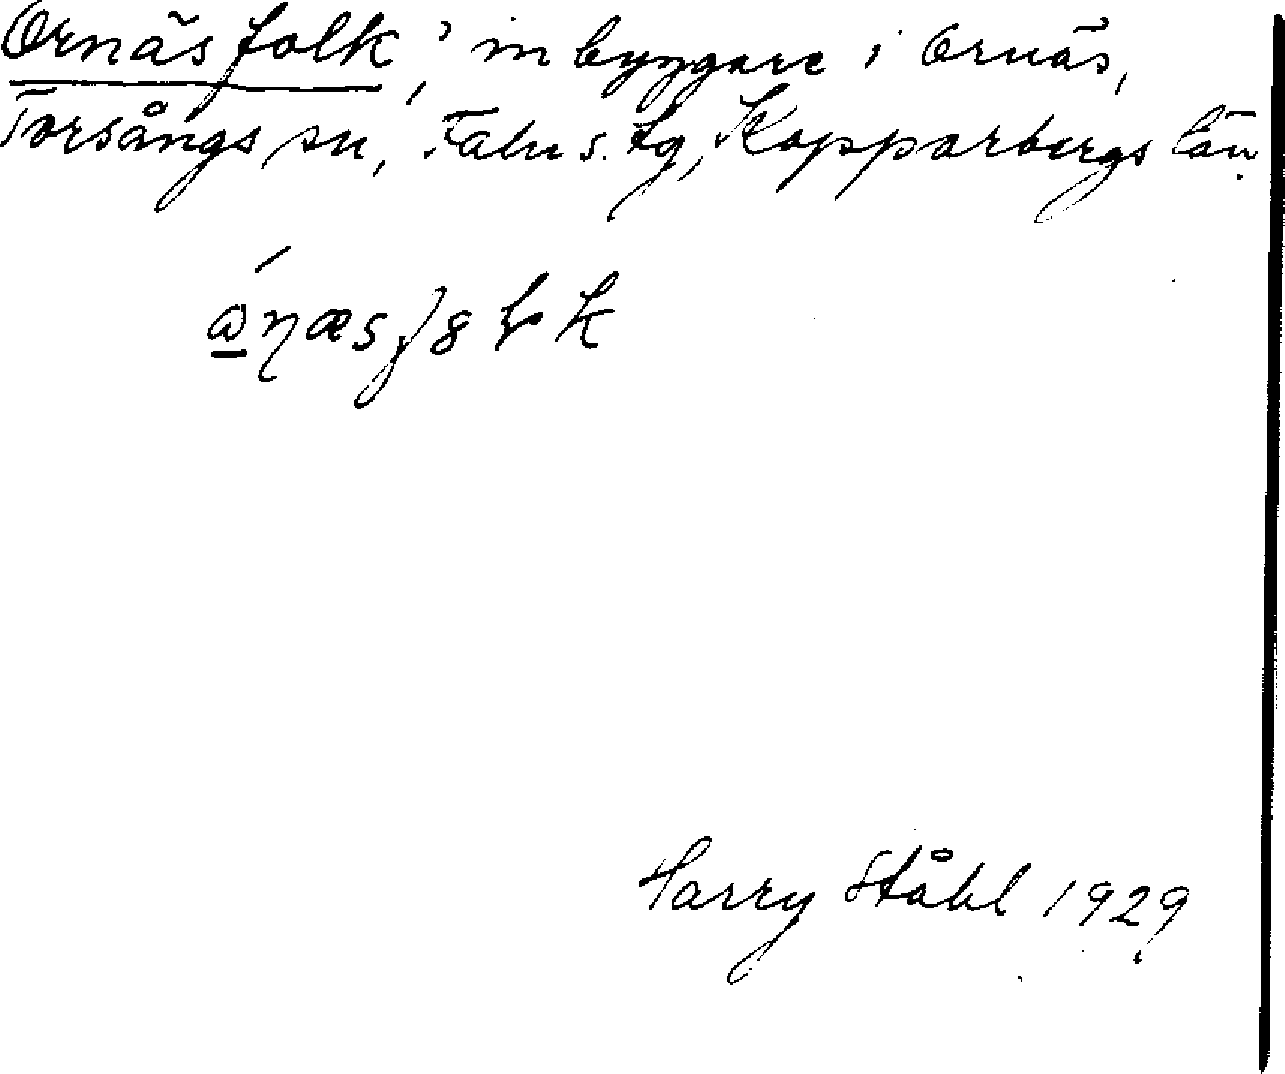 Ornäsfolk, inbyggare i Ornäs,
Torsångs sn, Falu s. tg, Kopparbergs län.
Harry Ståhl 1929